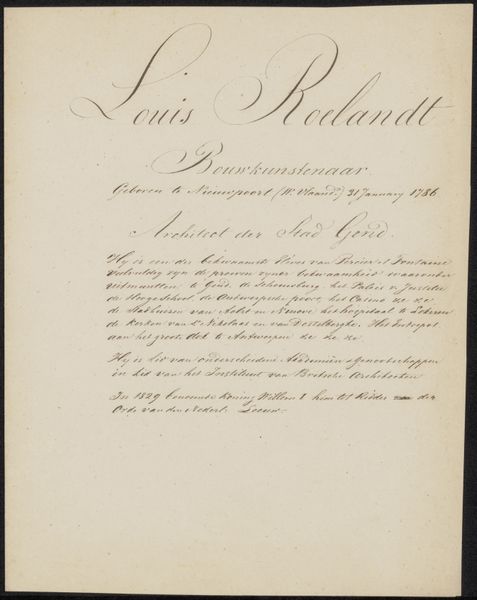 Louis Roelandt
Bouwkunstenaar.
Geboren te Nieuwpoort (W. Vlaand.) 31 January 1786
Architect der Stad Gend.
Hy is een der bekwaamste Eleves van Percier et Fontaine
veelvuldig zyn de proeven zyner bekwaamheid waaronder
uitmuntten te Gend, de Schouwburg, het Paleis v. Justitie
de Hoogeschool, de Antwerpsche poort, het Casino &c &c
de Stadhuizen van Aelst en Ninove het hospitaal te Lokeren
de Kerken van St Nikolaas en van Destelberghe. Het Entrepot
aan het groote dok te Antwerpen &c &c &c.
Hy is lid van onderscheidene Academien & Genootschappen
en lid van het Instituut van Britsche Architecten
In 1829 benoemde Koning Willem I hem tot Ridder der
Orde van den Nederl: Leeuw.